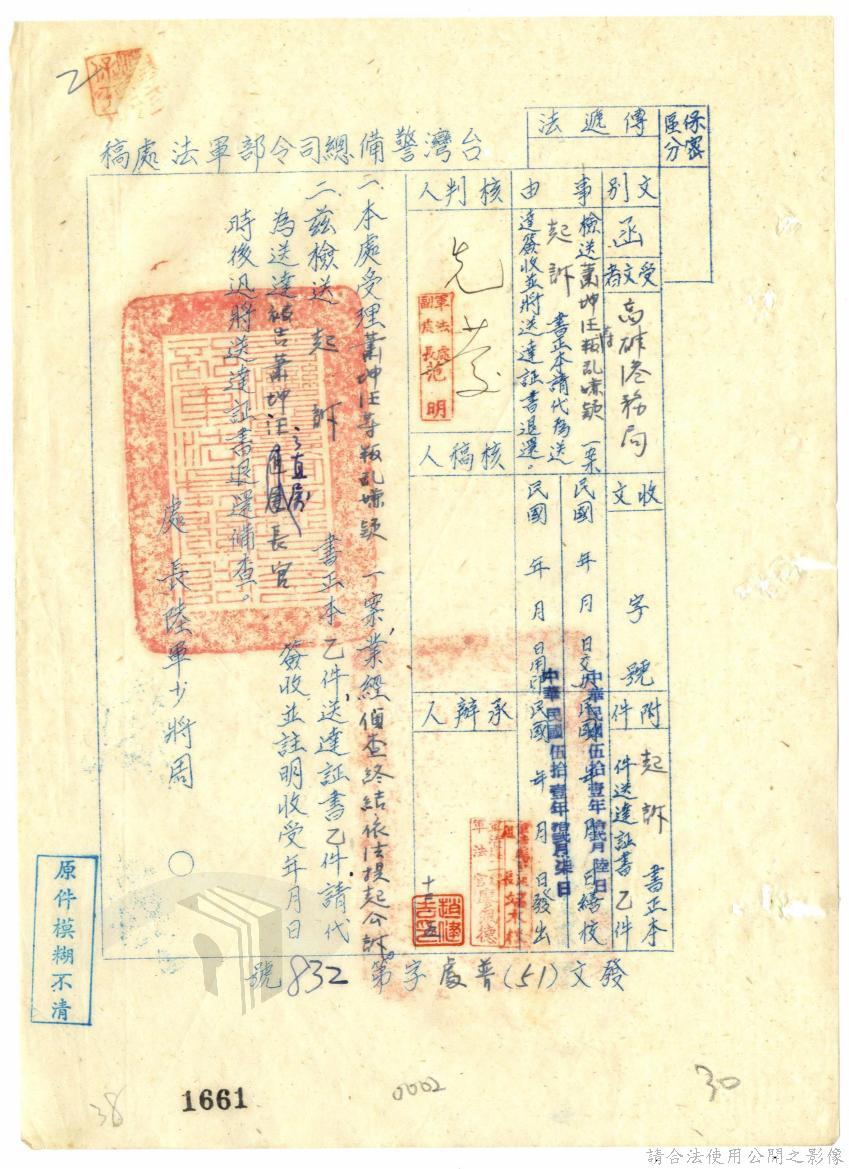 台灣警備總司令部軍法處稿
保密區分
傳遞法
文別
函
受文者
高雄港務局
收文
字
號
附件
起訴 書正本
件送達証書乙件
事由
檢送蕭坤汪等叛乱嫌疑一案
起訴 書正本請代為送
達簽收並將送達証書退還。
民國 年 月 日交办
民國 年 月 日繕校
民國 年 月 日用印
民國 年 月 日發出
中華民國伍拾壹年拾貳月陸日
中華民國伍拾壹年拾貳月柒日
核判人
軍法處
副處長范明
核稿人
承辦人
十二 五
一、本處受理蕭坤汪等叛乱嫌疑一案,業經偵查終結依法提起公訴。
二、茲檢送 起訴 書正本乙件,送達証書乙件請代
為送達被告蕭坤汪之直屬長官 簽收並註明收受年月日
時後迅將送達証書退還備查。
處長陸軍少將周
發文(51)普處字第832號
原件模糊不清
1661
0002
38
30
請合法使用公開之影像